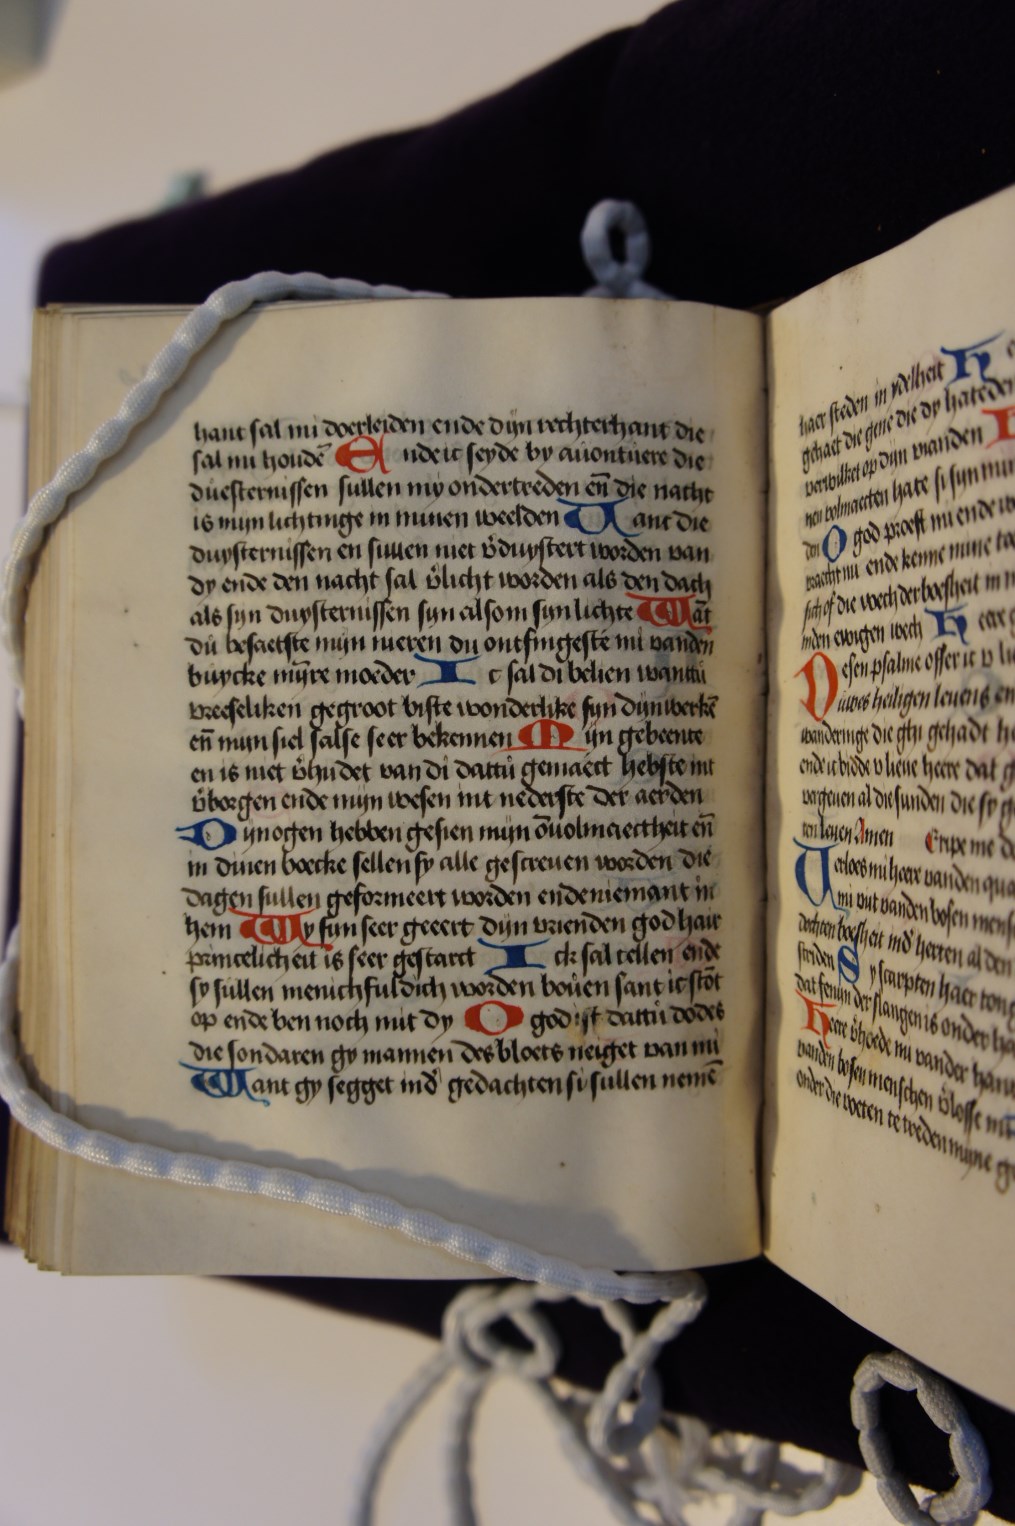 hant sal mi doerleiden ende dijn rechterhant die
sal mi houdē Ende ic seyde by auontuere die
duesternissen sullen my ondertreden eñ die nacht
is mijn lichtinge in minen weelden Want die
duysternissen en sullen niet v̄duystert worden van
dy ende den nacht sal v̄licht worden als den dach
als syn duysternissen syn alsom syn lichte Wāt
du besaetste mijn nieren du ontfingeste mi vanden
buycke mȳre moeder Ic sal di belien wanttu
vreeseliken gegroot biste wonderlike syn dijn werkē
eñ mijn siel salse seer bekennen Mijn gebeente
en is niet v̄hudet van di dattu gemaect hebste int
v̄borgen ende mijn wesen int nederste der aerden
Dijn ogen hebben gesien mijn ōuolmaectheit eñ
in dinen boecke sellen sy alle gescreuen worden die
dagen sullen geformeert worden ende niemant in
hem Wy syn seer geeert dijn vrienden god hair
princelicheit is seer gestarct Ick sal tellen ende
sy sullen menichfuldich worden bouen sant ic stōt
op ende ben noch mit dy O god ist dattu dodes
die sondaren gy mannen des bloets neiget van mi
Want gy segget ind̄ gedachten si sullen nemē
haer steden in ydelheit H
gehaet die gene die dy hateden
verwilket op dijn vianden
nen volmaecten hate si syn
O god proeft mi ende
mi ende kenne mine
sich of die wech der bosheit in
inden ewigen wech Heer
Desen psalme offer ic v
heiligen leuens en
wanderinge die ghi gehadt
ende ic bidde v lieue heere dat
vergeuen al die sunden die
leuen Amen Eripe me
Verloes mi heere vanden
mi vut vanden bosen
bosheit ind̄ herten al den
striden Sy scarpten haer
dat fenijn der slangen is onder
Heere v̄hoede mi vander
vanden bosen menschen v̄losse
onder die voeten te treden mijne